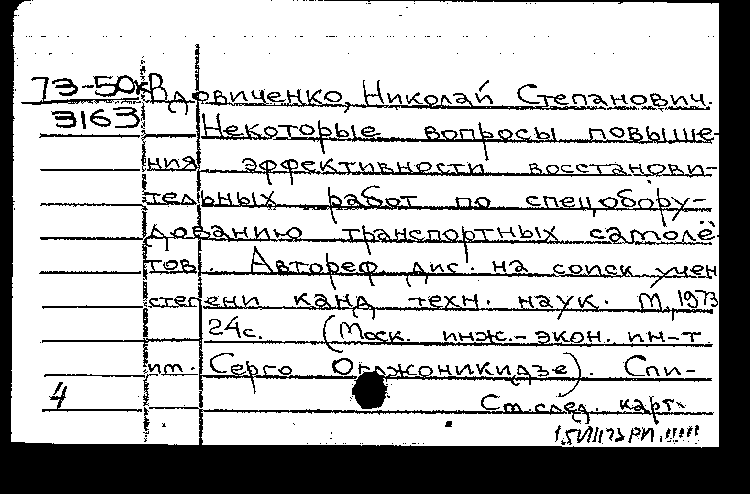 73-50к Вдовиченко, Николай Степанович.
3163 Некоторые вопросы повыше-
ния эффективности восстанови-
тельных работ по спецобору-
дованию транспортных самолё
тов. Автореф. дис. на соиск. учен
степени канд. техн. наук. М., 1973
24с. (Моск. инж.-экон. ин-т.
им. Серго Орджоникидзе). Спи-
4 См. след. карт.